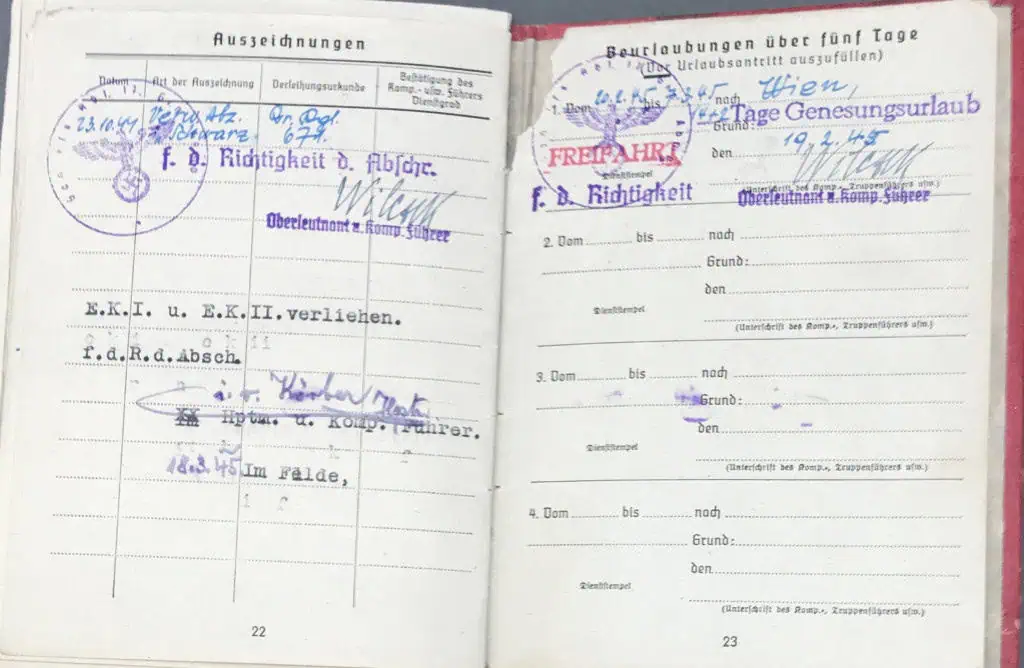 Auszeichnungen
Datum
Art der Auszeichnung
Verleihungsurkunde
Bestätigung des
Komp.- usw. Führers
Dienstgrad
23.10.41
Verw. Abz.
schwarz
f. d. Richtigkeit d. Abschr.
Oberleutnant u. Komp. Führer
E.K.I. u. E.K.II.verliehen.
f.d.R.d.Absch.
Hptm. u. Komp. Führer.
18.3.45 Im Felde,
22
Beurlaubungen über fünf Tage
(Vor Urlaubsantritt auszufüllen)
1. Vom 20.2.45 bis 7.3.45 nach Wien,
14+2 Tage Genesungsurlaub
Grund:
FREIFAHRT
den 19.2.45
Dienststempel
(Unterschrift des Komp., Truppenführers usw.)
f. d. Richtigkeit
Oberleutnant u. Komp. Führer
2. Vom bis nach
Grund:
den
Dienststempel
(Unterschrift des Komp., Truppenführers usw.)
3. Vom bis nach
Grund:
den
Dienststempel
(Unterschrift des Komp., Truppenführers usw.)
4. Vom bis nach
Grund:
den
Dienststempel
(Unterschrift des Komp., Truppenführers usw.)
23